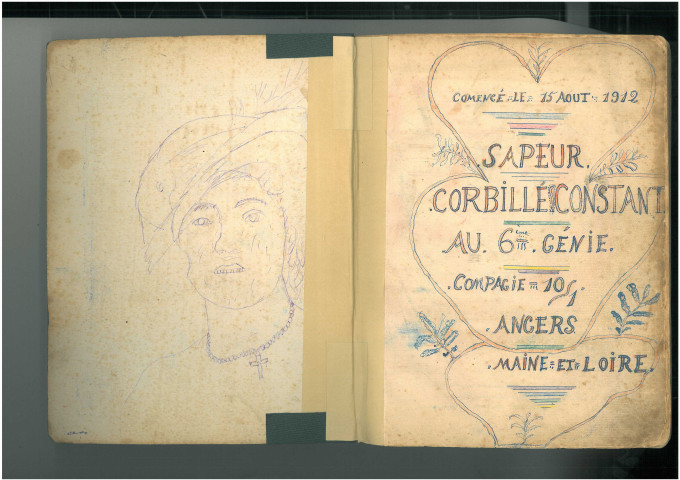 COMENCÉ = LE = 15 AOUT = 1912
.SAPEUR.
.CORBILLÉ CONSTANT
AU. 6ème GÉNIE.
.COMPAGIE = 10/1.
.ANGERS.
.MAINE = ET = LOIRE.